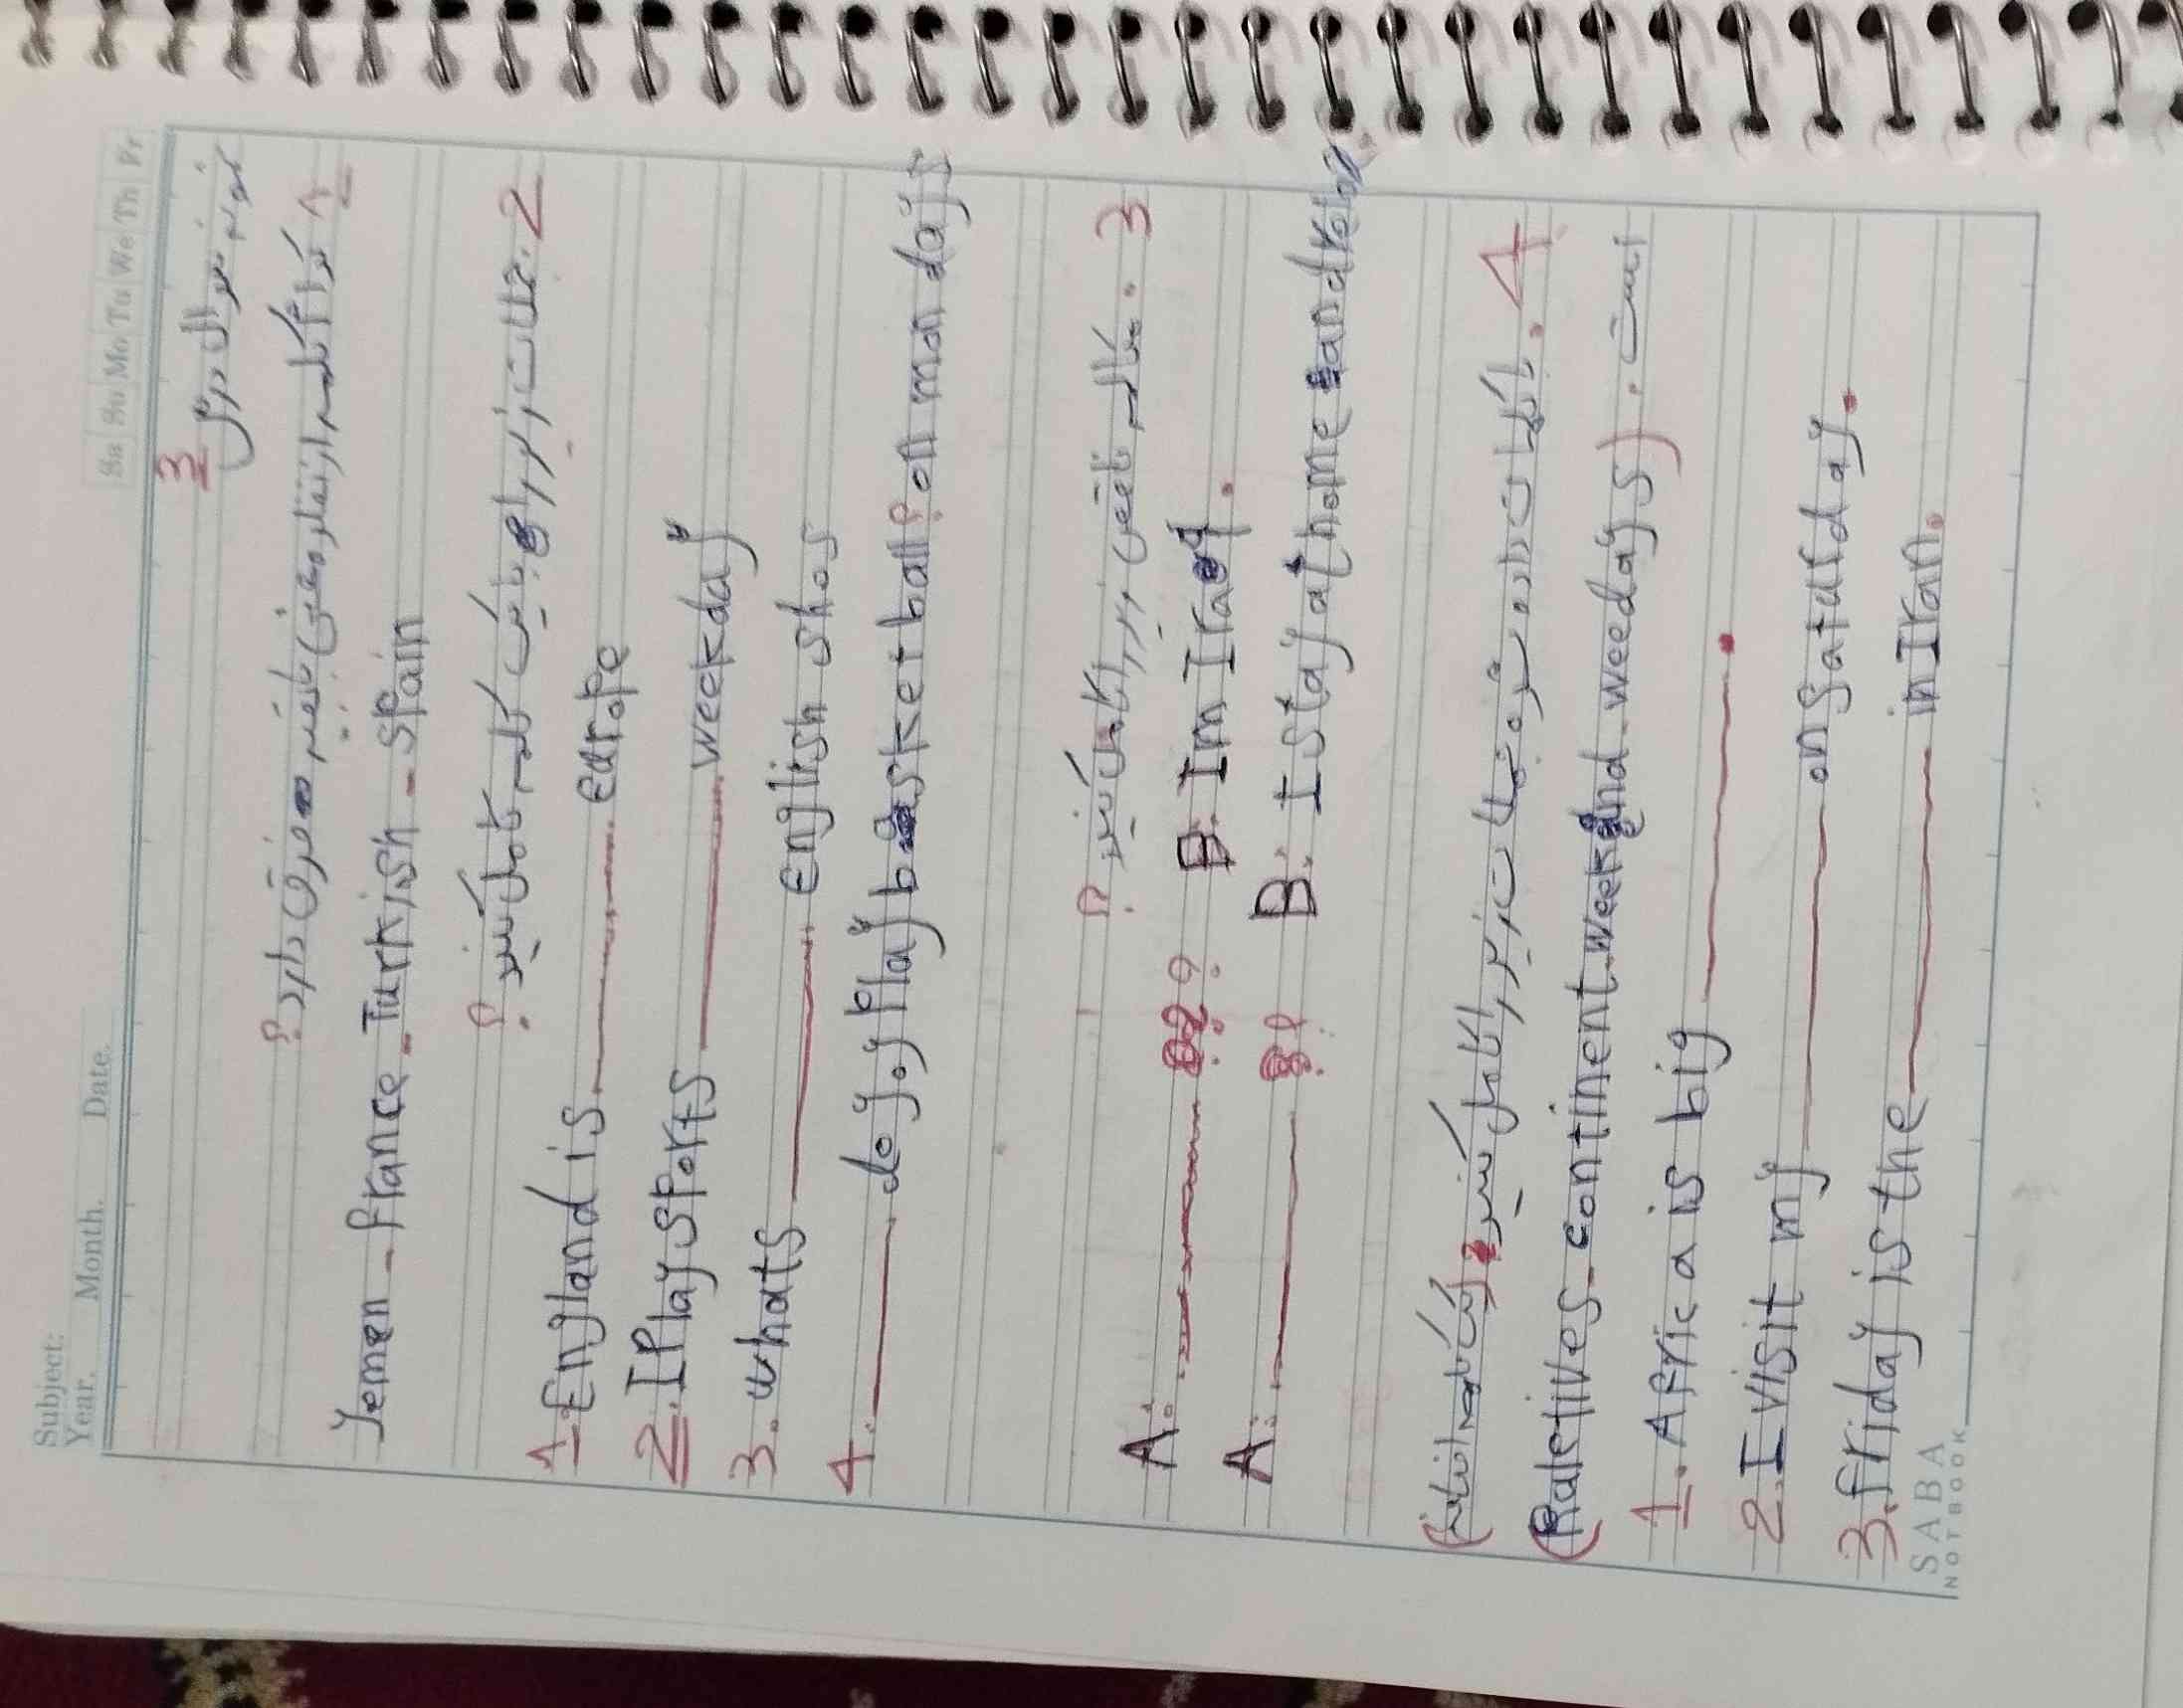 Subject:
Year. Month. Date.
Sa Su Mo Tu We Th Fr
نمونه سوال درس 3
1 کدام کلمه از نظر معنی با بقیه فرق دارد؟
Yemen - france - Turkish - spain
2. جملات زیر را با یک کلمه کامل کنید؟
1 England is ______ europe
2. I Play sports ______ weekday
3. whats ______ english shos
4. ______ do yoy Play basketball? on mondays
3. مکالمه ناقص زیر را کامل کنید؟
A: ______ ? B. Im Iraq.
A: ______ ? B: I stay at home and
4. با کلمات داده شده جملات زیر را کامل کنید (یک کلمه اضافه
است.) (Raletives - continent - weekend - weedays)
1. Africa is big ______.
2. I visit my ______ on saturday.
3. friday is the ______ in Iran.
SABA
NOTBOOK